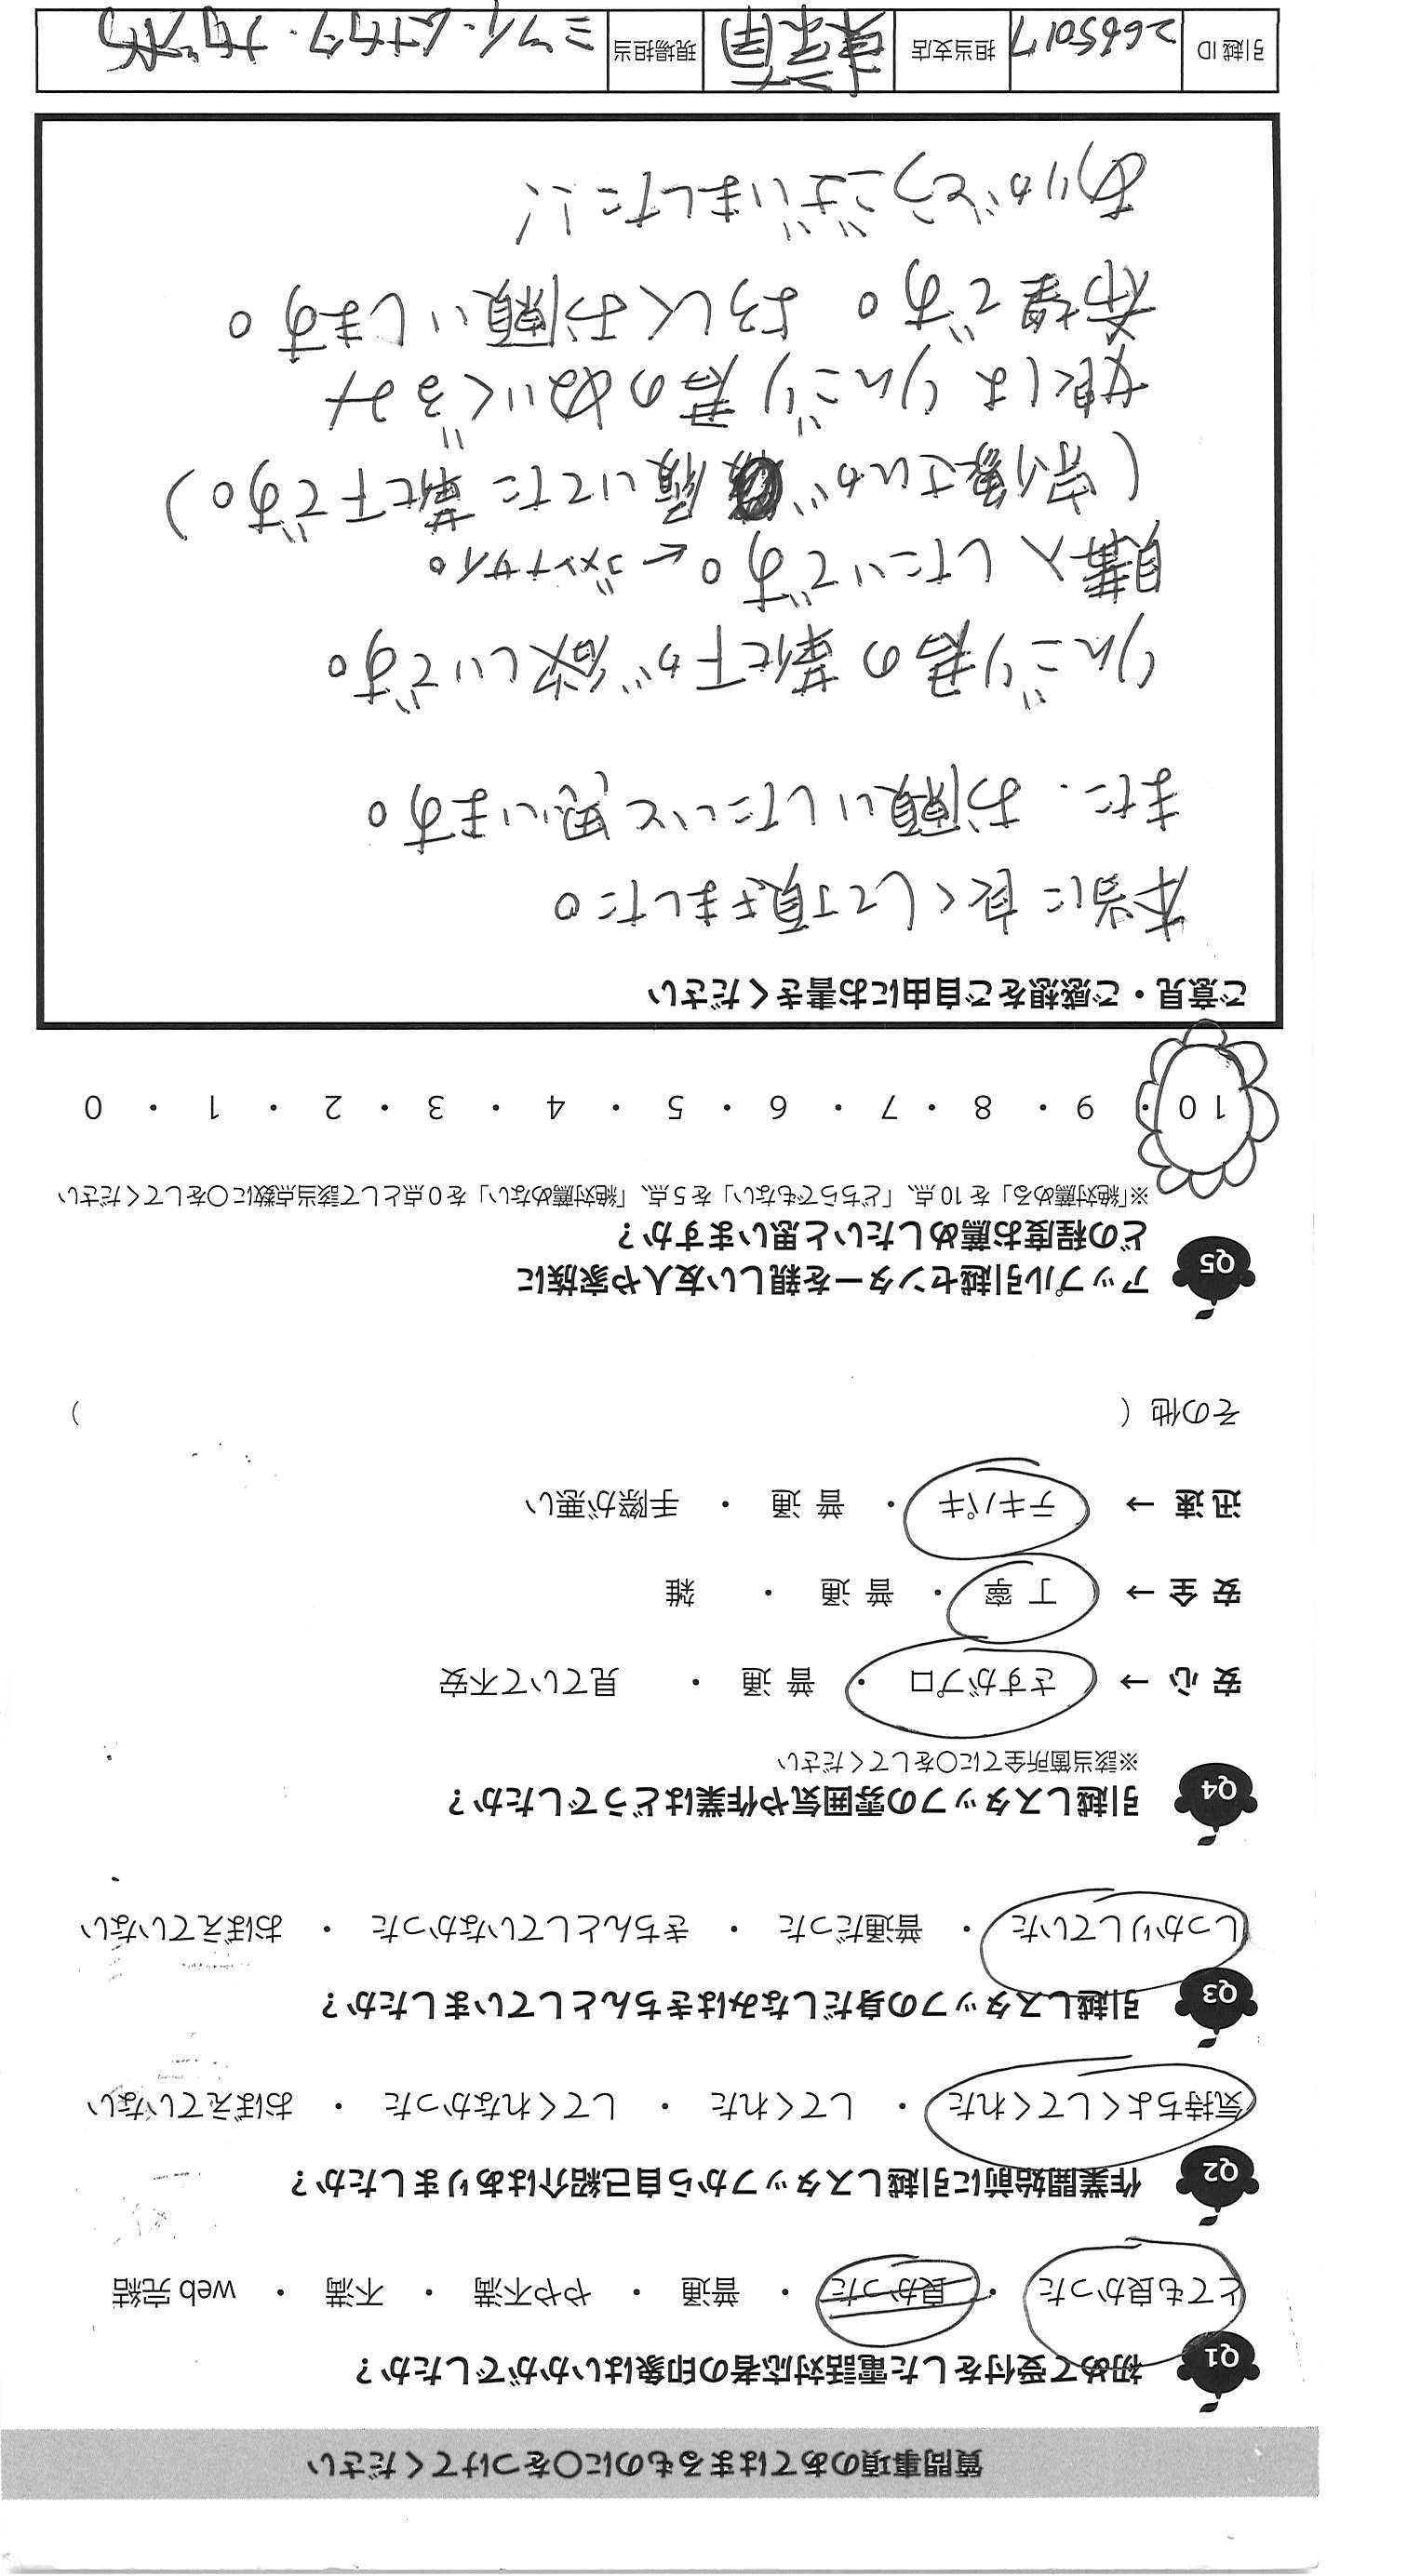 質問事項のあてはまるものに〇をつけてください
Q1 初めて受付をした電話対応者の印象はいかがでしたか？
とても良かった ・ 良かった ・ 普通 ・ やや不満 ・ 不満 ・ web 完結
Q2 作業開始前に引越しスタッフから自己紹介はありましたか？
気持ちよくしてくれた ・ してくれた ・ してくれなかった ・ おぼえていない
Q3 引越しスタッフの身だしなみはきちんとしていましたか？
しっかりしていた ・ 普通だった ・ きちんとしていなかった ・ おぼえていない
Q4 引越しスタッフの雰囲気や作業はどうでしたか？
※該当箇所全てに〇をしてください
安 心 → さすがプロ ・ 普 通 ・ 見ていて不安
安 全 → 丁 寧 ・ 普 通 ・ 雑
迅 速 → テキパキ ・ 普 通 ・ 手際が悪い
その他（ ）
Q5 アップル引越センターを親しい友人や家族に
どの程度お薦めしたいと思いますか？
※「絶対薦める」を 10 点、「どちらでもない」を 5 点、「絶対薦めない」を 0 点として該当点数に〇をしてください
10 ・ 9 ・ 8 ・ 7 ・ 6 ・ 5 ・ 4 ・ 3 ・ 2 ・ 1 ・ 0
ご意見・ご感想をご自由にお書きください
本当に良くして頂きました。
また、お願いしたいと思います。
りんごり君の靴下が欲しいです。
購入したいです。←ゴメンナサイ。
(宗像さんが 履いてた靴下です。)
娘はりんごり君のぬいぐるみ
希望です。よろしくお願いします。
ありがとうございました!!
引越 ID 2665017 担当支店 現場担当 ミツイ・ムナカタ・